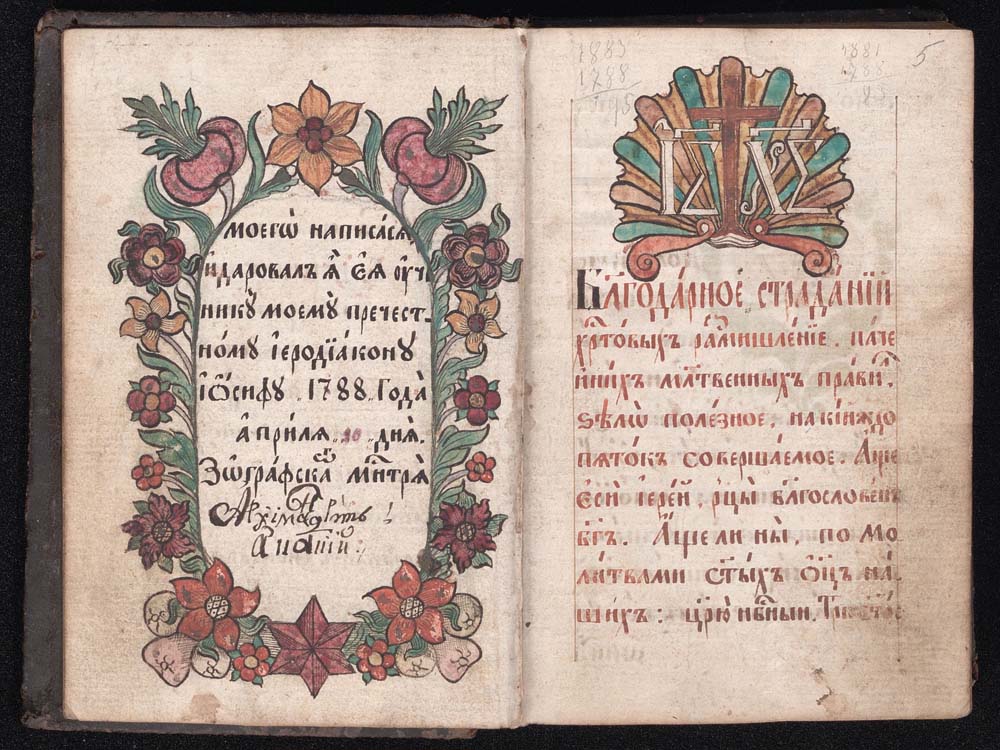 моегѡ̀ написа́сѧ,
и҆даровалъ ѧ҆̀ є҆ѧ̀ оу҆че
никꙋ̀ моемꙋ̀ пречест-
но́мꙋ і҆еродїа́конꙋ
і҆ѡ́сифꙋ . 1788 . Года̀
а҆при́лѧ . 20 . днѧ̀.
Зѡгра́фска мⷩ҇трѧ̀
Архїмандритъ
Анатїй:
1883
1788
95
1881
1788
93
5
ІѶ ХС
Бл҃года́рное страда́нїй
хрⷭ҇то́выхъ ра̑змишле́нїе. па́че
и҆ны́хъ мл҃твенныхъ пра́вил,
ѕѣлѡ̀ поле́зное, на кі́йждо
пѧто́къ соверша́емое. А҆́ще
є҆сѝ і҆ере́й, рцы̀ бл҃гослове́нъ
бг҃ъ. А҆́ще ли нѝ, по мо
ли́твами ст҃ы́хъ ѻ҆ц҃ъ на́
шихъ: цр҃ю̀ нбⷭ҇ныи. Трист҃о́е